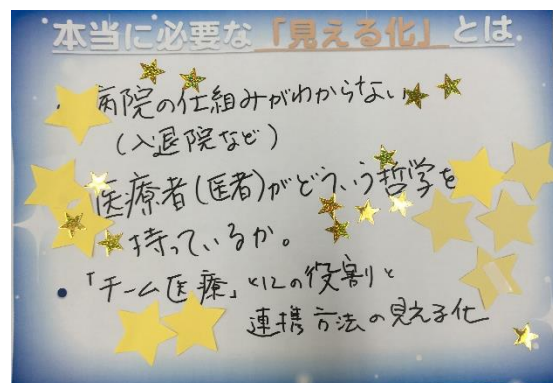 本当に必要な「見える化」とは.
・病院の仕組みがわからない
(入退院など)
医療者(医者)がどういう哲学を
持っているか。
・「チーム医療」としての役割と
連携方法の見える化